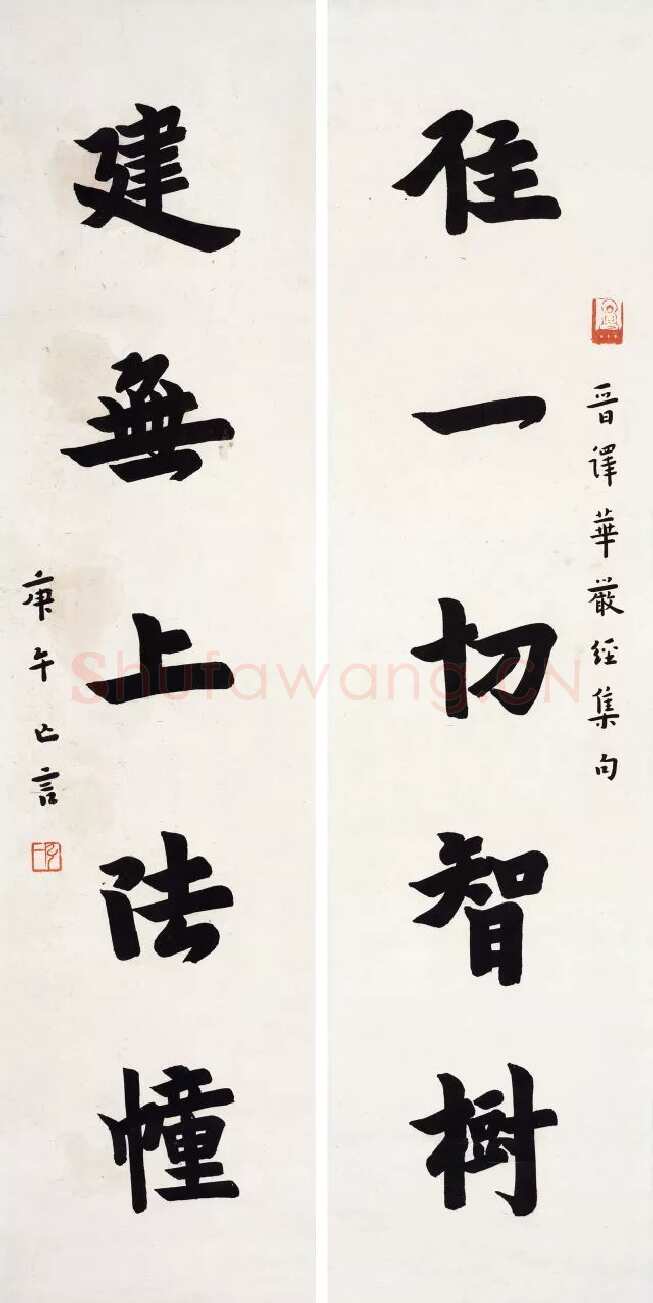 晋譯華嚴經集句
住一切智樹
建無上法幢
庚午亡言
Shufawang.CN